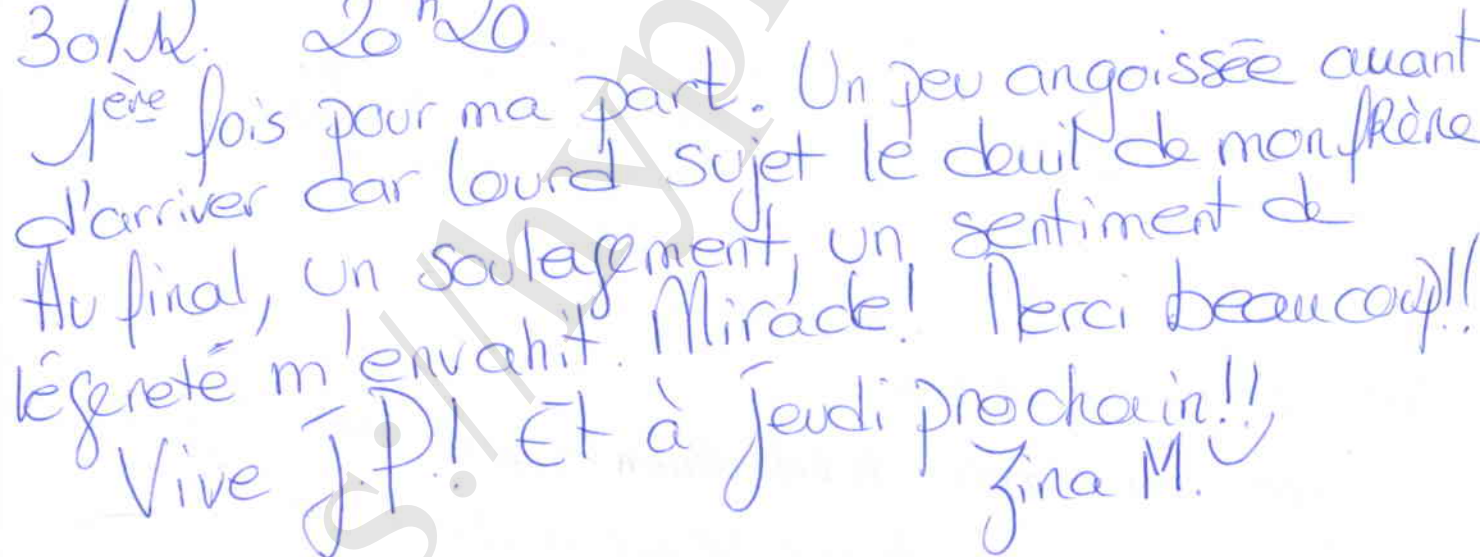 30/12. 20h20.
1ère fois pour ma part. Un peu angoissée avant
d'arriver car lourd sujet le deuil de mon frère
Au final, un soulagement, un sentiment de
légereté m'envahit. Miracle! Merci beaucoup!!
Vive J.P.! Et à jeudi prochain!!
Zina M.
s://hyp